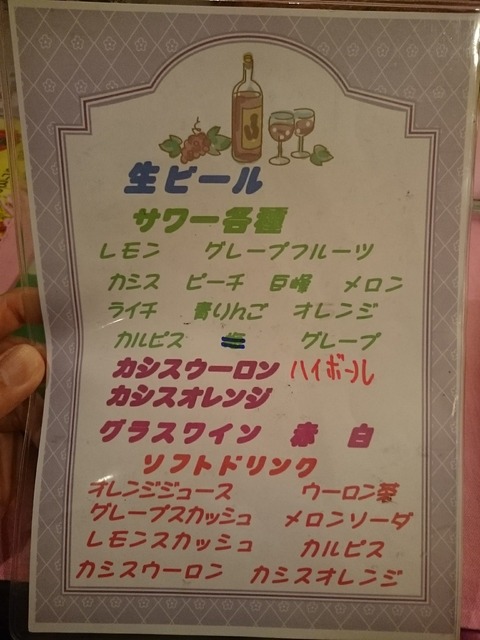 生ビール
サワー各種
レモン グレープフルーツ
カシス ピーチ 巨峰 メロン
ライチ 青りんご オレンジ
カルピス グレープ
カシスウーロン ハイボール
カシスオレンジ
グラスワイン 赤 白
ソフトドリンク
オレンジジュース ウーロン茶
グレープスカッシュ メロンソーダ
レモンスカッシュ カルピス
カシスウーロン カシスオレンジ